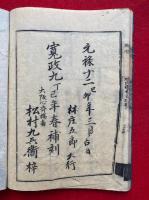 元禄十二己卯年三月吉日
林庄五郎大行
寛政九丁巳年春補刻
大阪心斎橋
松村九兵衛梓